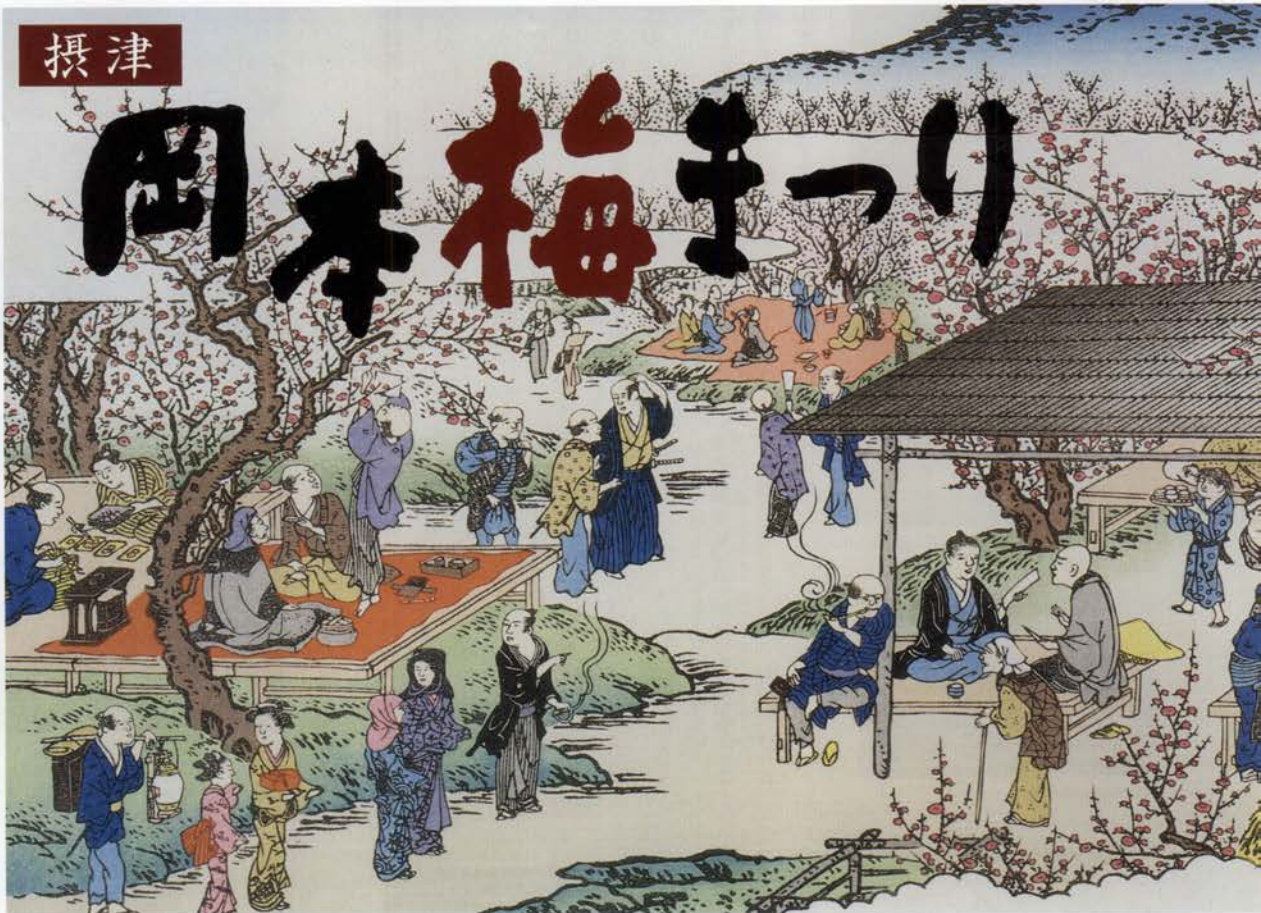 摂津
岡本梅まつり